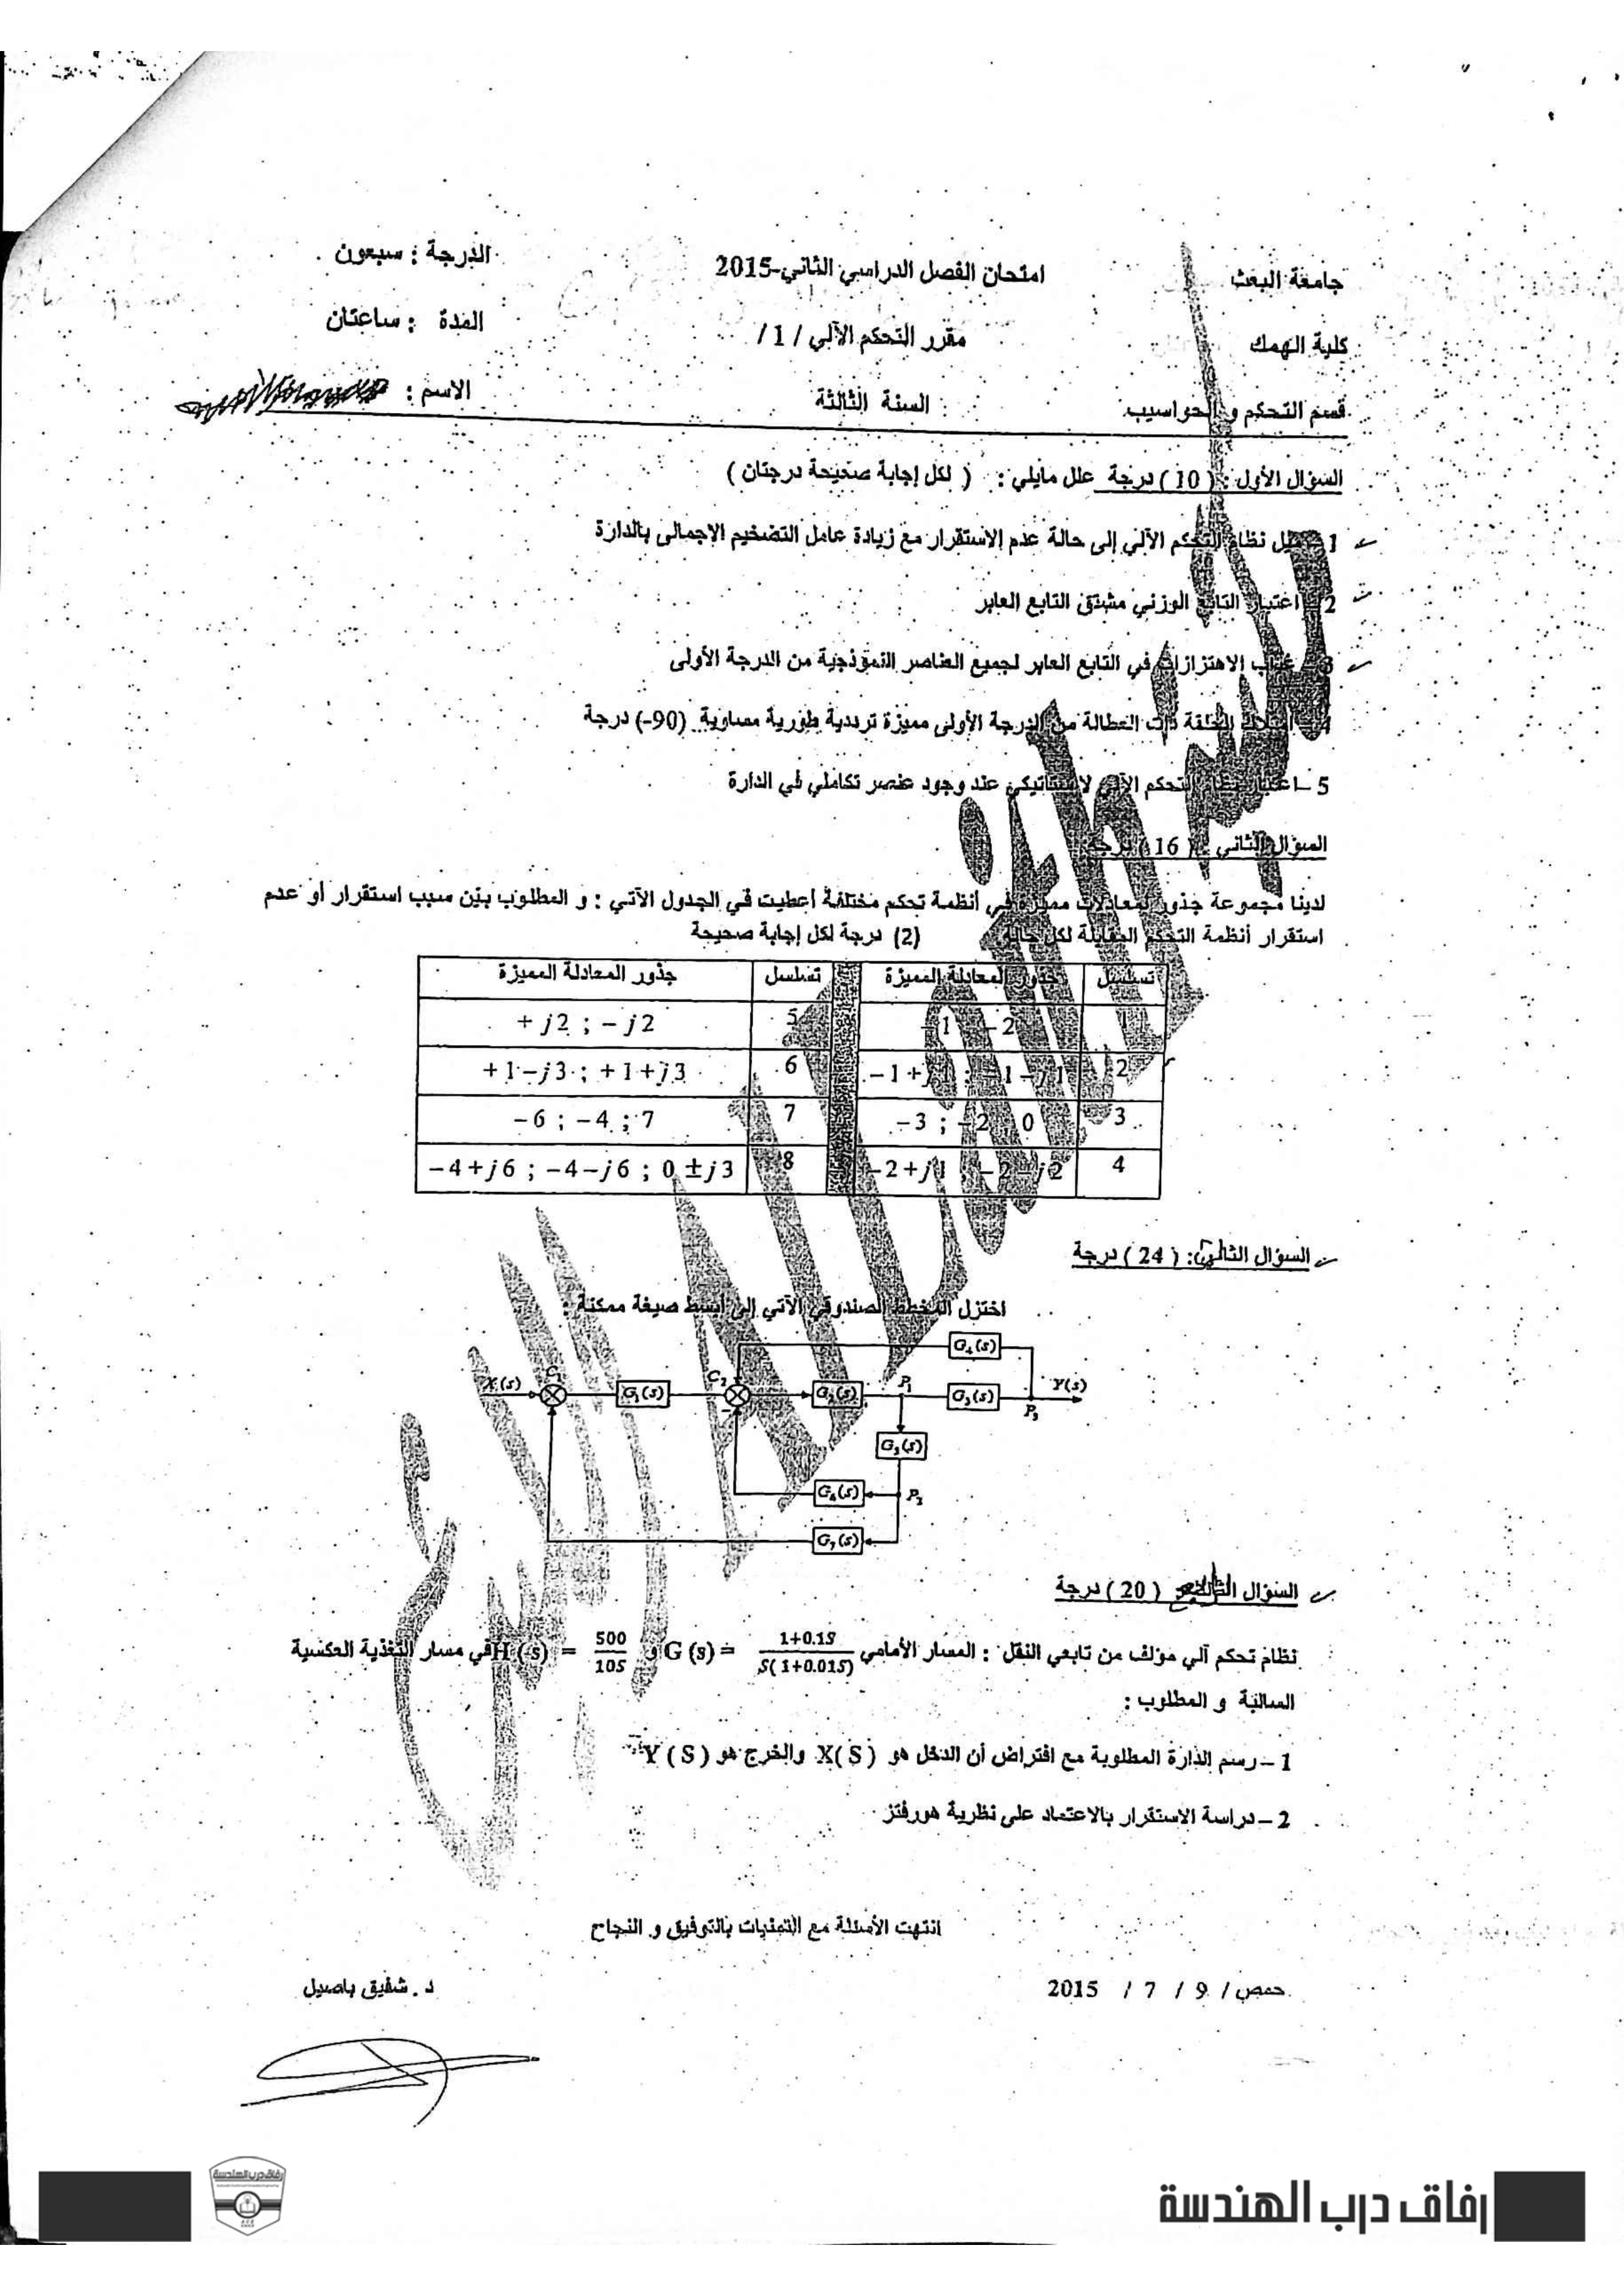 جامعة البعث
امتحان الفصل الدراسي الثاني-2015
الدرجة : سبعون
كلية الهمك
مقرر التحكم الآلي / 1 /
المدة : ساعتان
قسم التحكم و الحواسيب
السنة الثالثة
الاسم :
السؤال الأول : ( 10 ) درجة علل مايلي : ( لكل إجابة صحيحة درجتان )
1 - نظام التحكم الآلي إلى حالة عدم الاستقرار مع زيادة عامل التضخيم الإجمالي بالدارة
2 - اعتبار التابع الوزني مشتق التابع العابر
3 - غياب الاهتزازات في التابع العابر لجميع العناصر النموذجية من الدرجة الأولى
ذات العطالة من الدرجة الأولى مميزة ترددية طورية مساوية (90-) درجة
5 – اعتبار نظام التحكم الآلي لاستاتيكي عند وجود عنصر تكاملي في الدارة
السؤال الثاني : ( 16 ) درجة
لدينا مجموعة جذور لمعادلات مميزة في أنظمة تحكم مختلفة أعطيت في الجدول الآتي : و المطلوب بيّن سبب استقرار أو عدم
استقرار أنظمة التحكم المقابلة لكل حالة (2) درجة لكل إجابة صحيحة
تسلسل جذور المعادلة المميزة تسلسل جذور المعادلة المميزة
1 -1 -2 5 + j2 ; – j2
2 -1+j1 ; -1-j1 6 +1–j3 ; +1+j3
3 -3 ; -2 ; 0 7 -6 ; -4 ; 7
4 -2+j1 ; -2-j2 8 -4+j6 ; -4-j6 ; 0 ±j3
السؤال الثالث: ( 24 ) درجة
اختزل المخطط الصندوقي الآتي إلى أبسط صيغة ممكنة :
G₄(s)
X(s) C₁ G₁(s) C₂ G₂(s) P₁ G₃(s) P₃ Y(s)
G₅(s)
G₆(s) P₂
G₇(s)
السؤال الرابع ( 20 ) درجة
نظام تحكم آلي مؤلف من تابعي النقل : المسار الأمامي G (s) = 1+0.1S / S( 1+0.01S) و H (s) = 500 / 10S في مسار التغذية العكسية
السالبة و المطلوب :
1 – رسم الدارة المطلوبة مع افتراض أن الدخل هو X( S ) والخرج هو Y ( S )
2 – دراسة الاستقرار بالاعتماد على نظرية هورفتز
انتهت الأسئلة مع التمنيات بالتوفيق و النجاح
حمص / 9 / 7 / 2015
د . شفيق باصيل
رفاق درب الهندسة